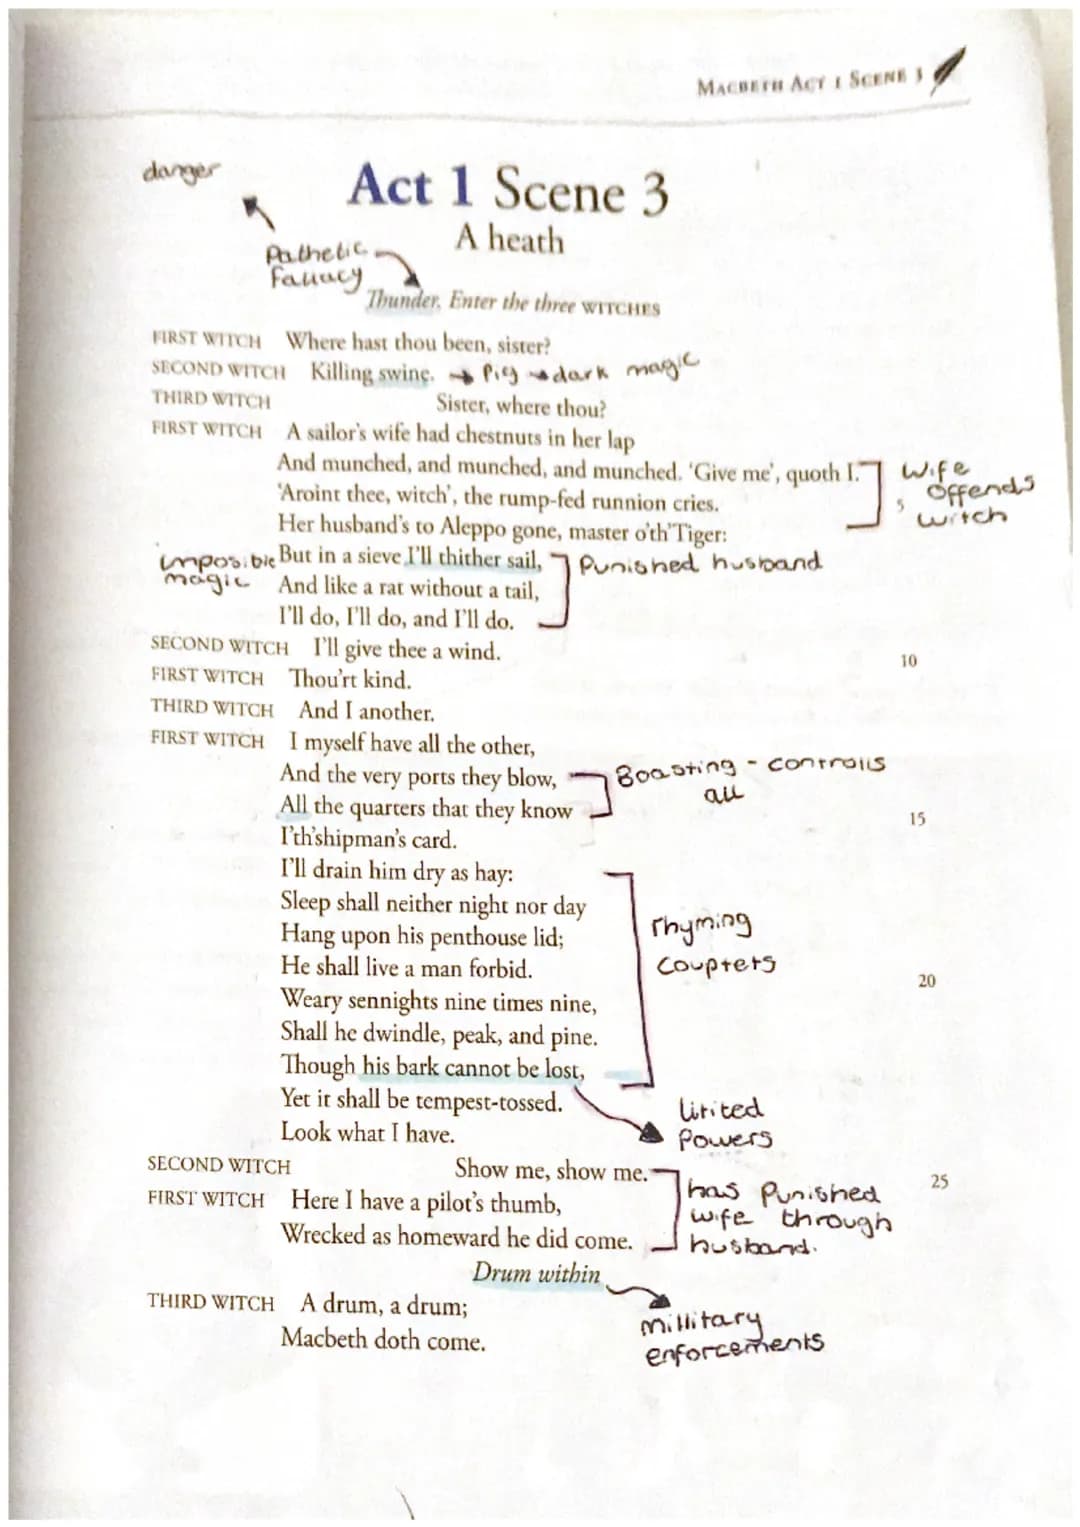 MACBETH ACT 1 SCENE 3
danger
Act 1 Scene 3
A heath
Pathetic
Fallacy
Thunder. Enter the three WITCHES
FIRST WITCH Where hast thou been, sister?
SECOND WITCH Killing swine. → Pig → dark magic
THIRD WITCH Sister, where thou?
FIRST WITCH A sailor's wife had chestnuts in her lap
And munched, and munched, and munched. 'Give me', quoth I. Wife
'Aroint thee, witch', the rump-fed runnion cries. 5 offends
Her husband's to Aleppo gone, master o'th'Tiger: witch
imposible But in a sieve I'll thither sail, Punished husband
magic And like a rat without a tail,
I'll do, I'll do, and I'll do.
SECOND WITCH I'll give thee a wind. 10
FIRST WITCH Thou'rt kind.
THIRD WITCH And I another.
FIRST WITCH I myself have all the other,
And the very ports they blow, Boasting - controlls
all
All the quarters that they know 15
I'th'shipman's card.
I'll drain him dry as hay:
Sleep shall neither night nor day
Hang upon his penthouse lid; rhyming
He shall live a man forbid. couptets
Weary sennights nine times nine, 20
Shall he dwindle, peak, and pine.
Though his bark cannot be lost,
Yet it shall be tempest-tossed. Litited
Look what I have. Powers
SECOND WITCH Show me, show me. 25
FIRST WITCH Here I have a pilot's thumb, has Punished
wife through
Wrecked as homeward he did come. husband.
Drum within
THIRD WITCH A drum, a drum; millitary
Macbeth doth come. enforcements